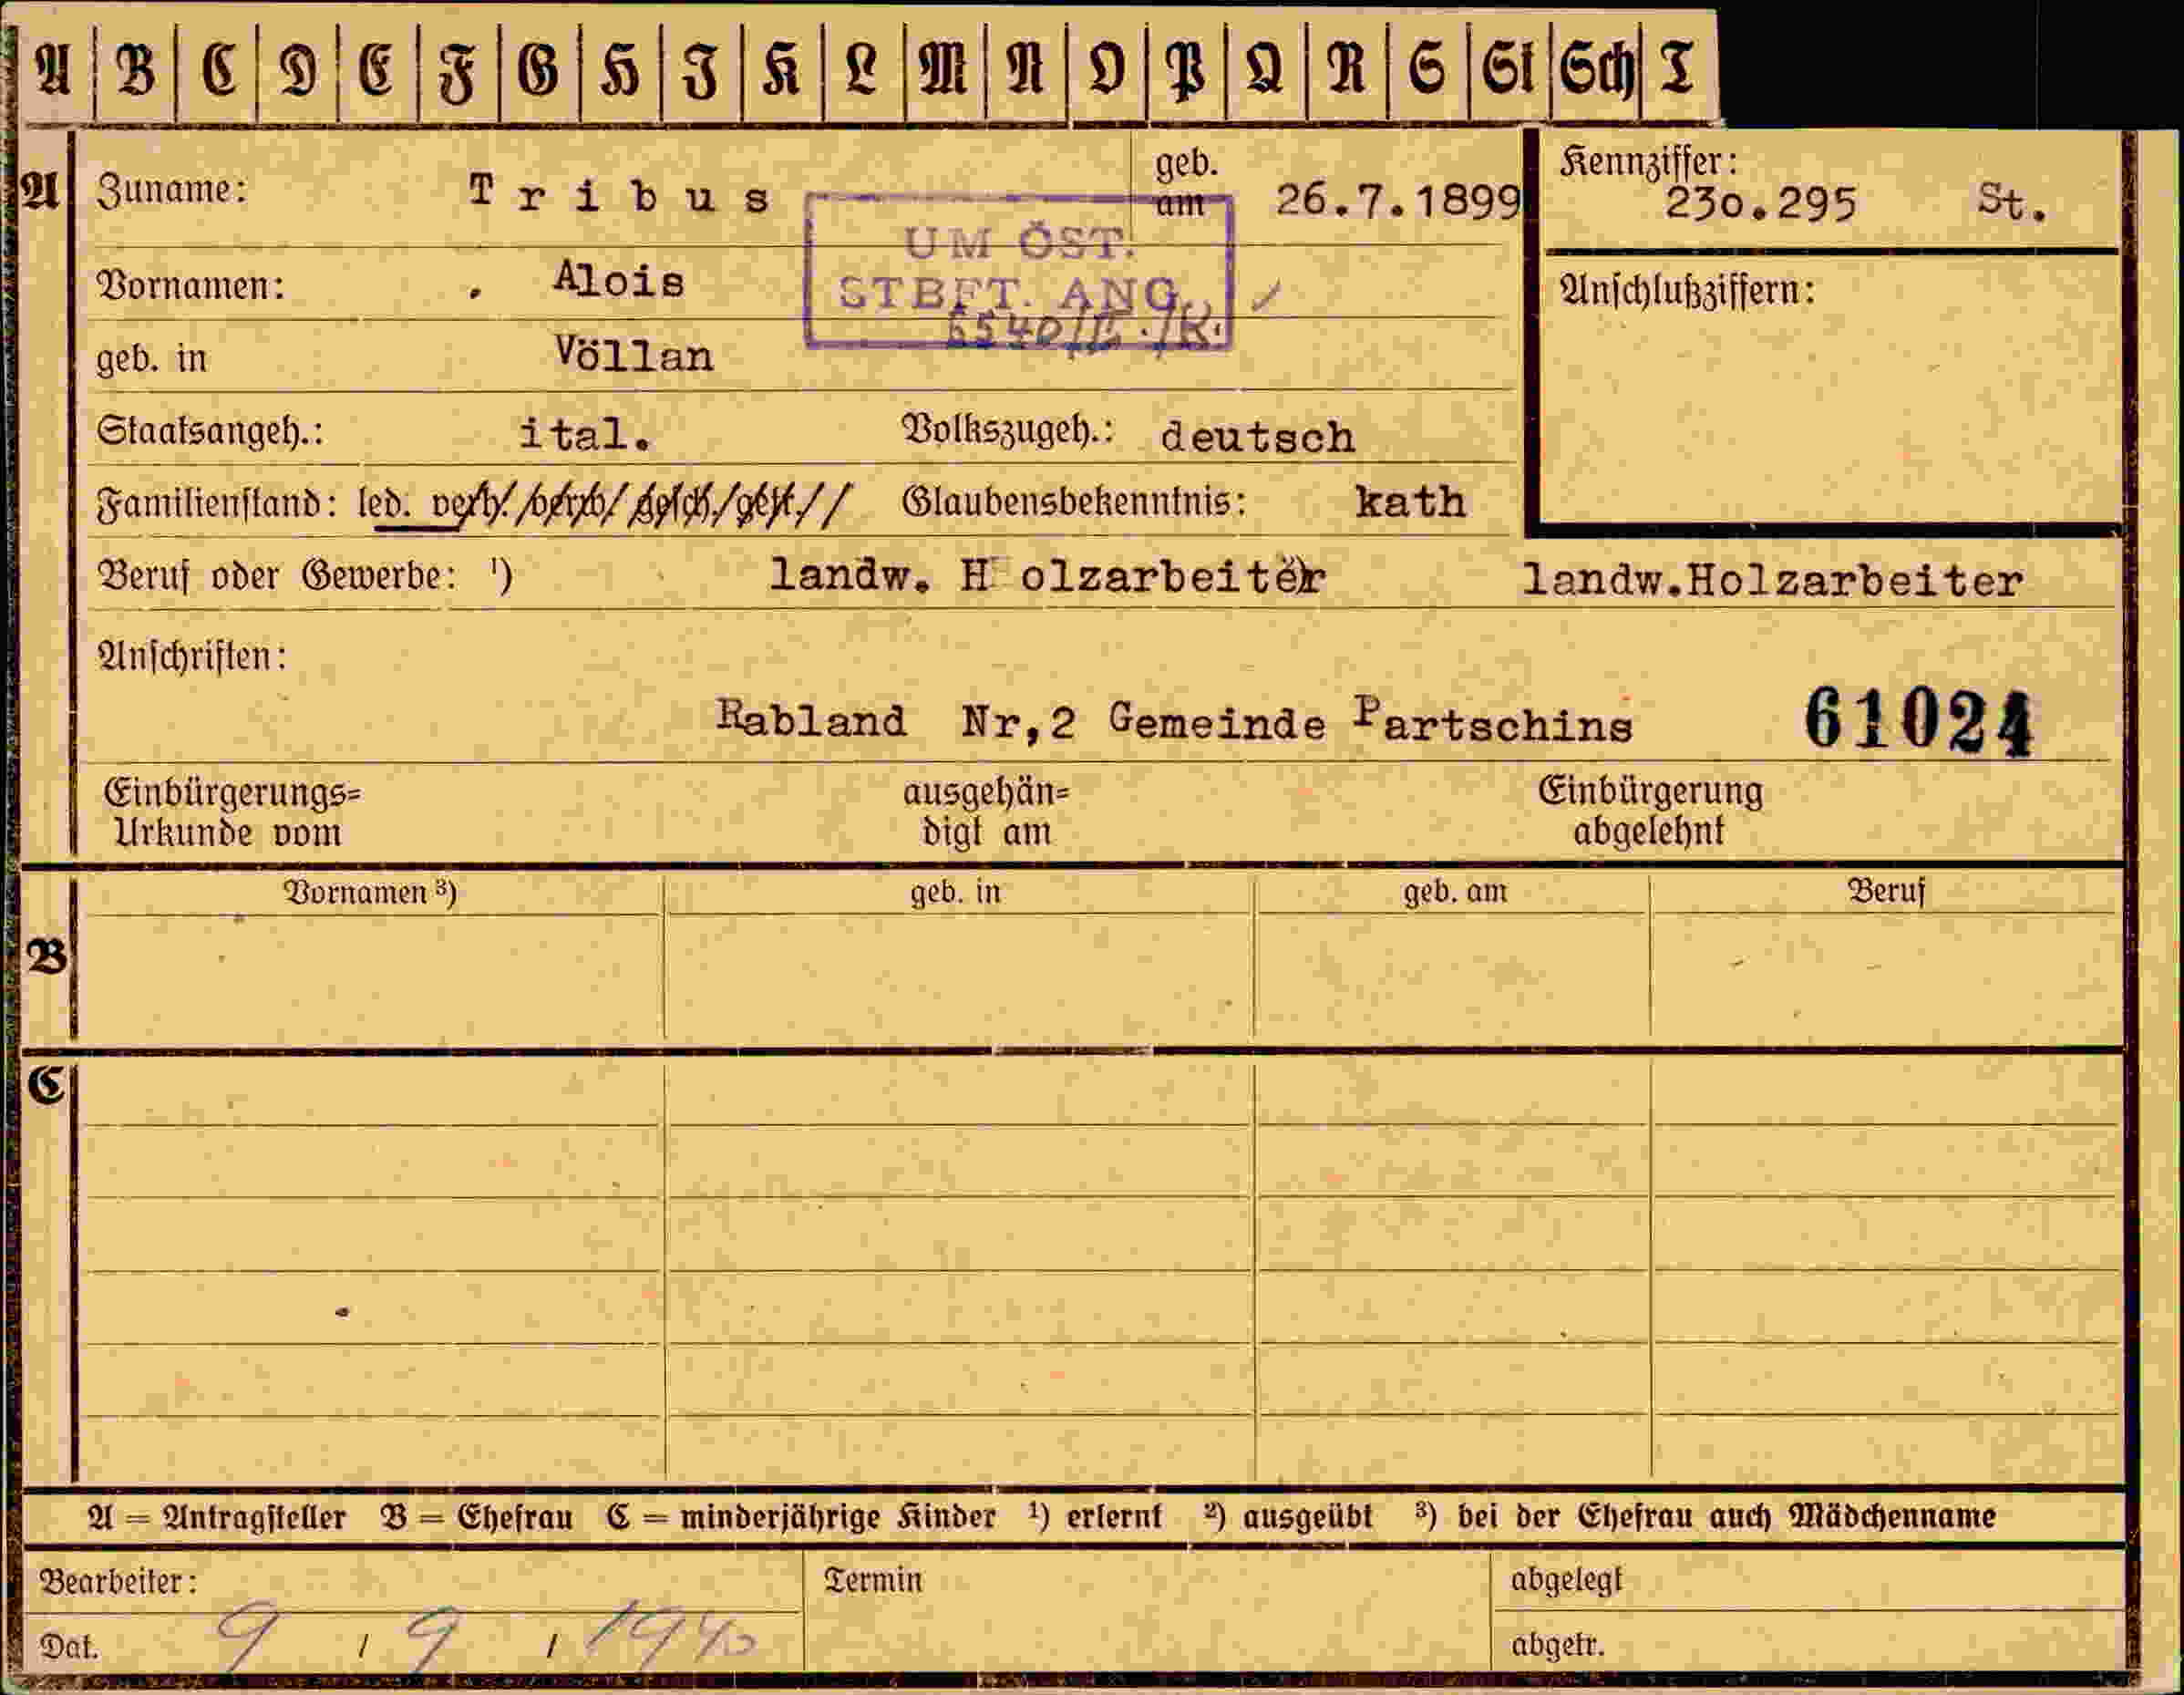 A B C D E F G H I K L M N O P Q R S St Sch T
A Zuname: Tribus geb. am 26.7.1899 Kennziffer: 230.295 St.
UM ÖST.
STBFT. ANG.
Vornamen: Alois Anschlußziffern:
geb. in Völlan
Staatsangeh.: ital. Volkszugeh.: deutsch
Familienstand: led. verh. verw. gesch. getr. Glaubensbekenntnis: kath
Beruf oder Gewerbe: ¹) landw. H olzarbeiter landw.Holzarbeiter
Anschriften:
Rabland Nr,2 Gemeinde Partschins 61024
Einbürgerungs= ausgehän= Einbürgerung
Urkunde vom digt am abgelehnt
Vornamen ³) geb. in geb. am Beruf
B
C
A = Antragsteller B = Ehefrau C = minderjährige Kinder ¹) erlernt ²) ausgeübt ³) bei der Ehefrau auch Mädchenname
Bearbeiter: Termin abgelegt
Dat. 9 / 9 / 1940 abgetr.